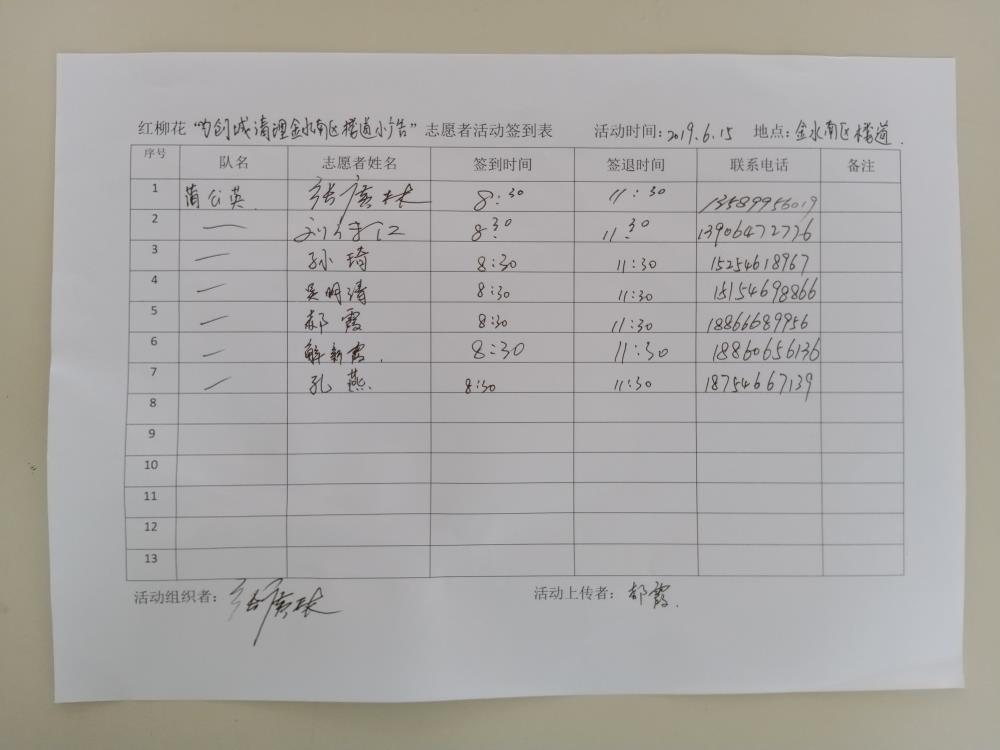 红柳花“为创城清理金水南区楼道小广告”志愿者活动签到表 活动时间:2019.6.15 地点:金水南区楼道.
序号 队名 志愿者姓名 签到时间 签退时间 联系电话 备注
1 蒲公英. 张广林 8:30 11:30 13589956019
2 — 8:30 11:30 13906472776
3 — 孙琦 8:30 11:30 15254618967
4 — 吴明清 8:30 11:30 15154698866
5 — 郝霞 8:30 11:30 18866689956
6 — 解新霞. 8:30 11:30 18860656136
7 — 孔燕. 8:30 11:30 18754667139
8
9
10
11
12
13
活动组织者: 张广林 活动上传者: 郝霞.